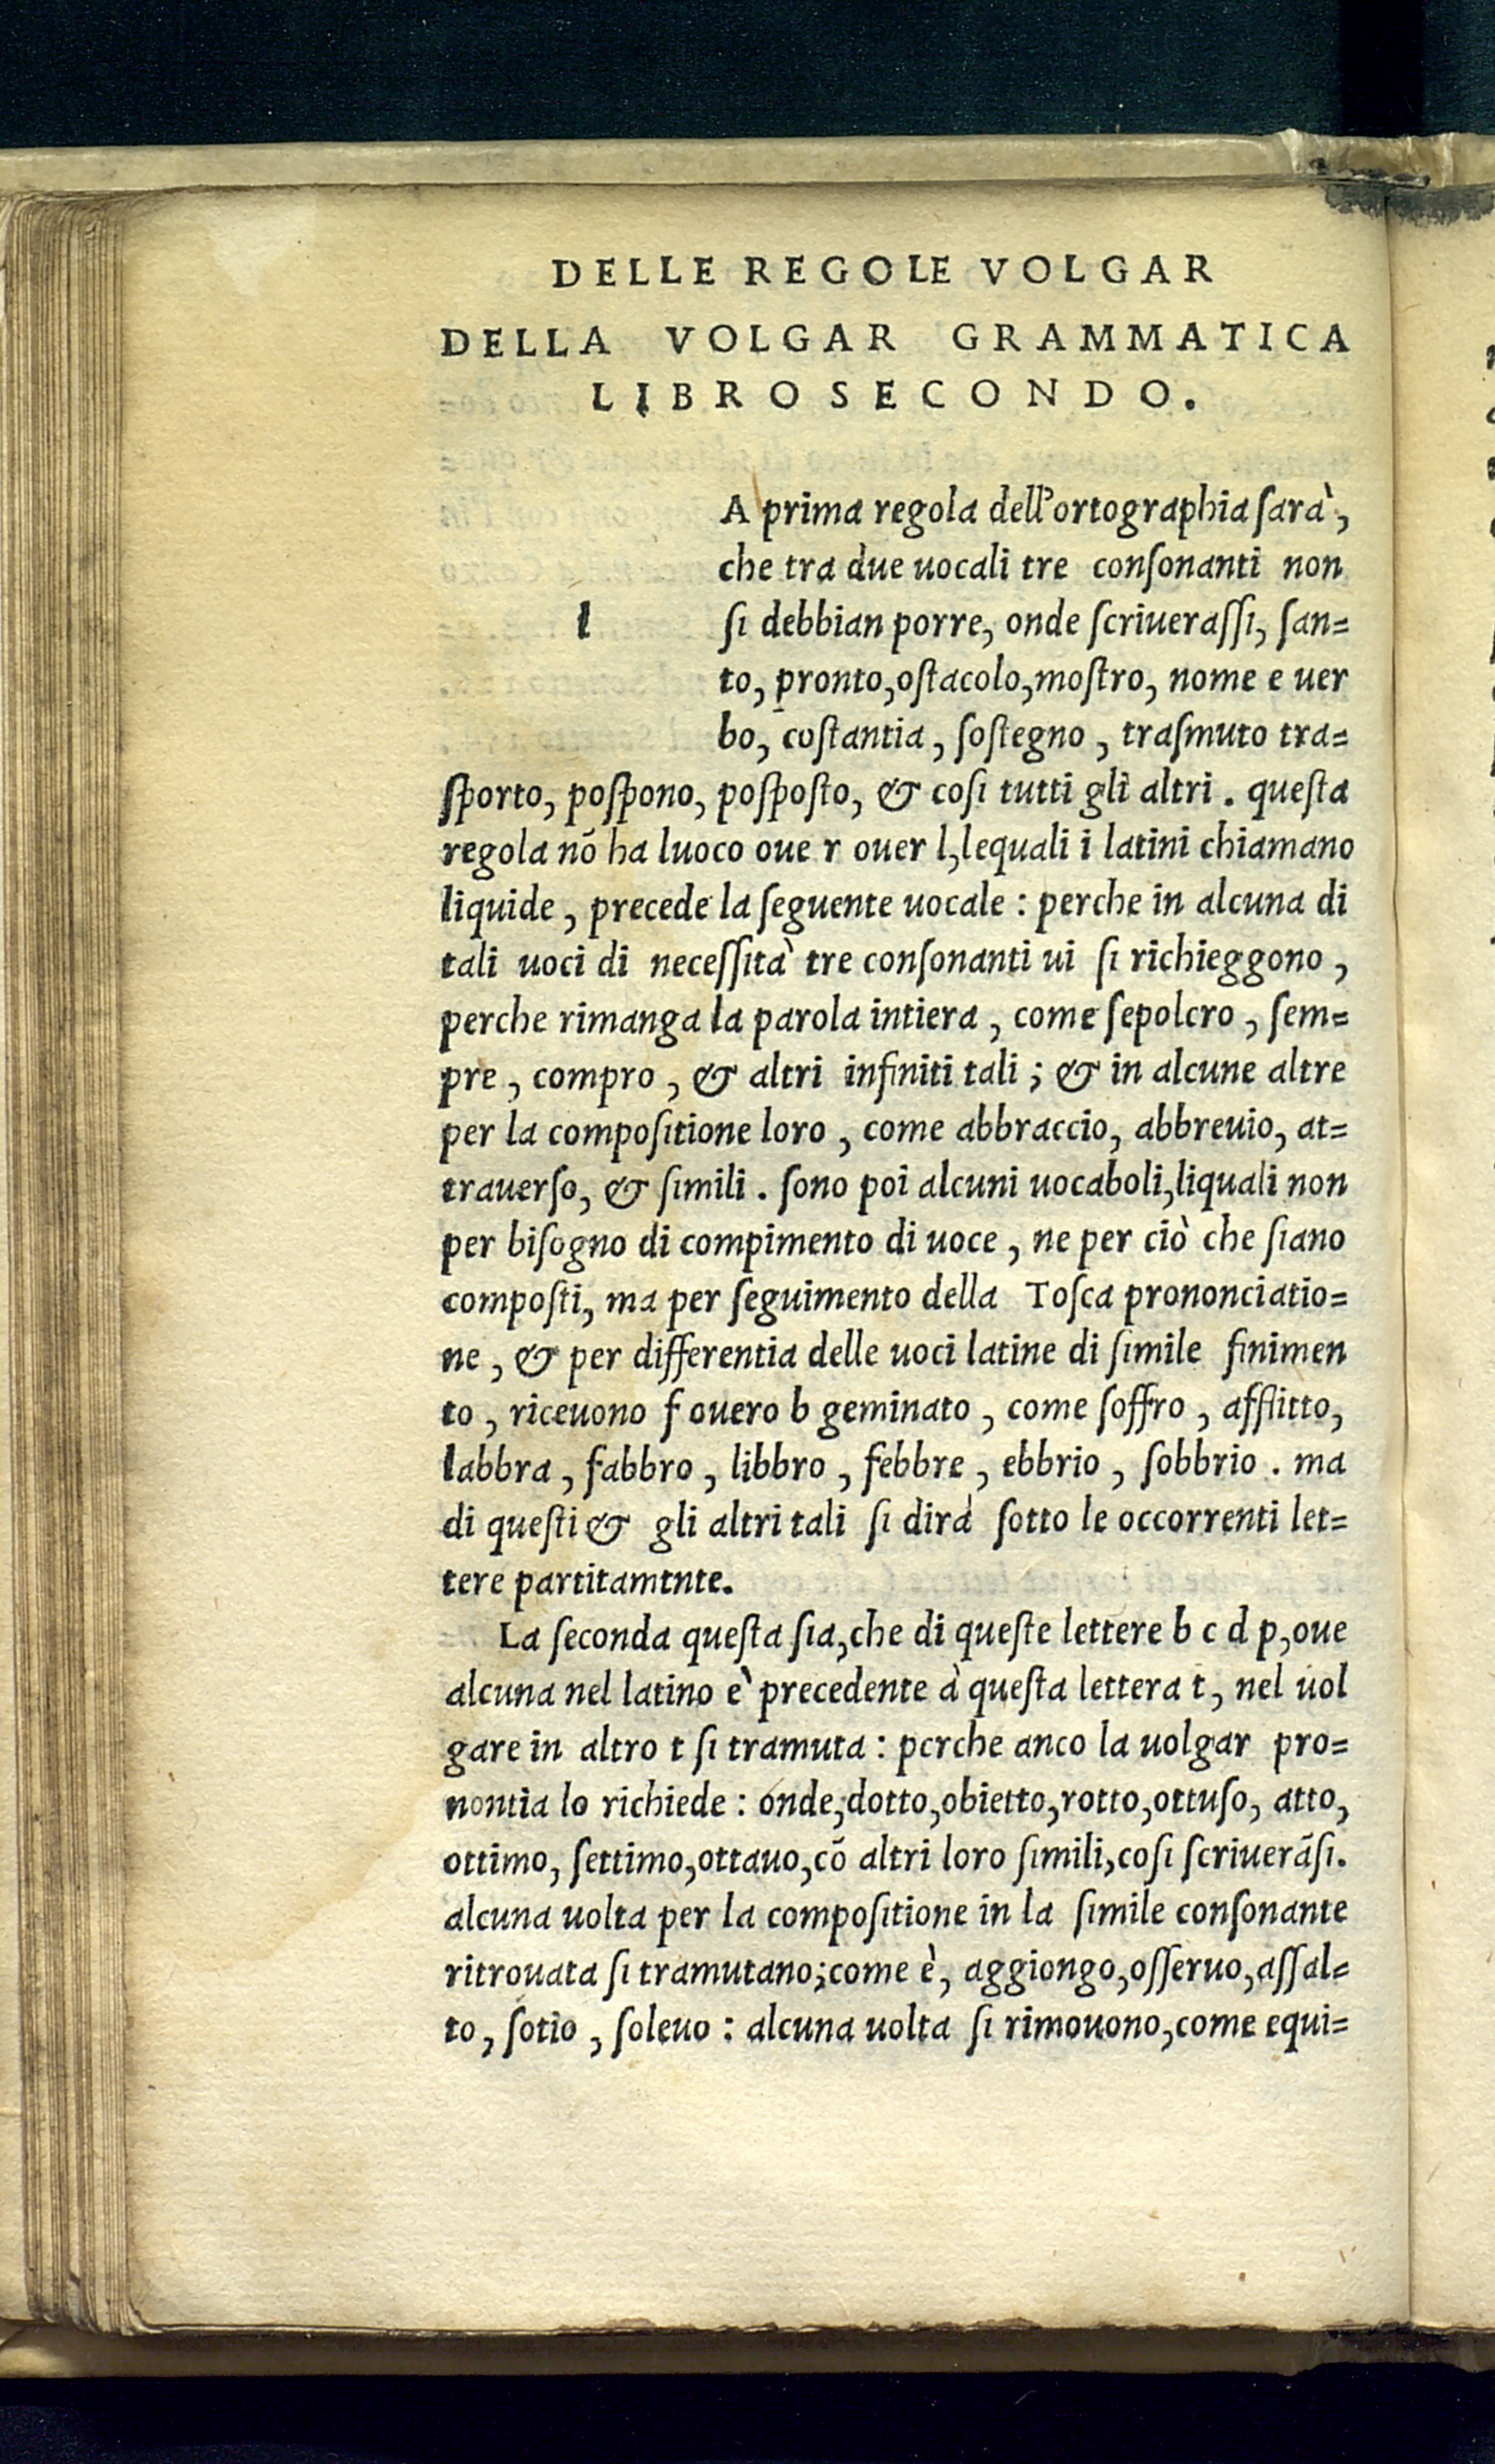 DELLE REGOLE VOLGAR
DELLA VOLGAR GRAMMATICA
LIBRO SECONDO.
l
A prima regola dell'ortographia ſarà,
che tra due uocali tre conſonanti non
ſi debbian porre, onde ſcriueraſſi, ſan=
to, pronto,oſtacolo,moſtro, nome e uer
bo, coſtantia, ſoſtegno, traſmuto tra=
ſporto, poſpono, poſpoſto, & coſi tutti gli altri. queſta
regola nõ ha luoco oue r ouer l,lequali i latini chiamano
liquide, precede la ſeguente uocale: perche in alcuna di
tali uoci di neceſſità tre conſonanti ui ſi richieggono,
perche rimanga la parola intiera, come ſepolcro, ſem=
pre, compro, & altri infiniti tali; & in alcune altre
per la compoſitione loro, come abbraccio, abbreuio, at=
trauerſo, & ſimili. ſono poi alcuni uocaboli,liquali non
per biſogno di compimento di uoce, ne per ciò che ſiano
compoſti, ma per ſeguimento della Toſca prononciatio=
ne, & per differentia delle uoci latine di ſimile finimen
to, riceuono f ouero b geminato, come ſoffro, afflitto,
labbra, fabbro, libbro, febbre, ebbrio, ſobbrio. ma
di queſti & gli altri tali ſi dirà ſotto le occorrenti let=
tere partitamtnte.
La ſeconda queſta ſia,che di queſte lettere b c d p,oue
alcuna nel latino è precedente à queſta lettera t, nel uol
gare in altro t ſi tramuta: perche anco la uolgar pro=
nontia lo richiede: onde,dotto,obietto,rotto,ottuſo, atto,
ottimo, ſettimo,ottauo,cõ altri loro ſimili,coſi ſcriuerãſi.
alcuna uolta per la compoſitione in la ſimile conſonante
ritrouata ſi tramutano;come è, aggiongo,oſſeruo,aſſal=
to, ſotio, ſoleuo: alcuna uolta ſi rimouono,come equi=